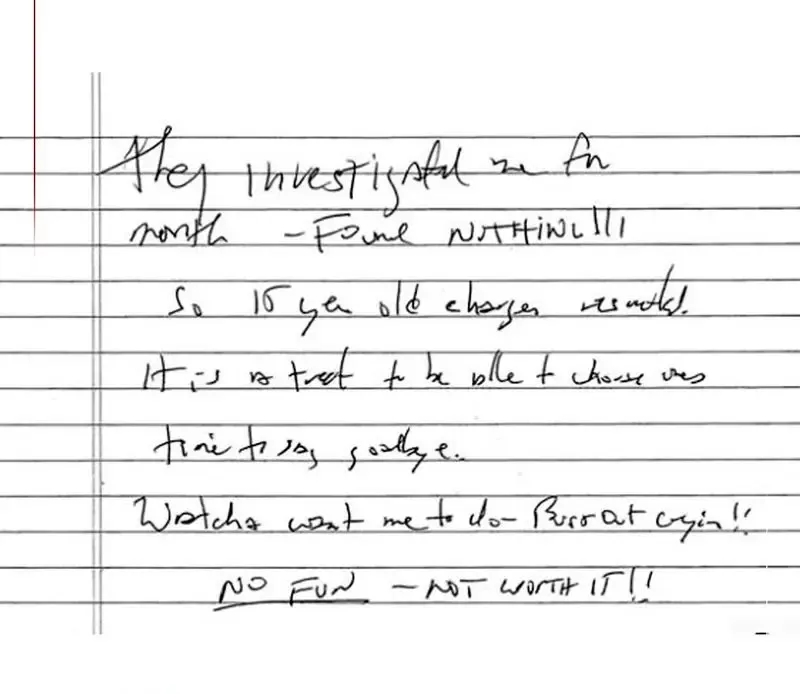 They investigated me for
month - Found NOTHING!!!
So 15 year old charges
It is a treat to be able to choose
time to say goodbye.
Watcha want me to do - Burst out cryin!!
NO FUN - NOT WORTH IT!!